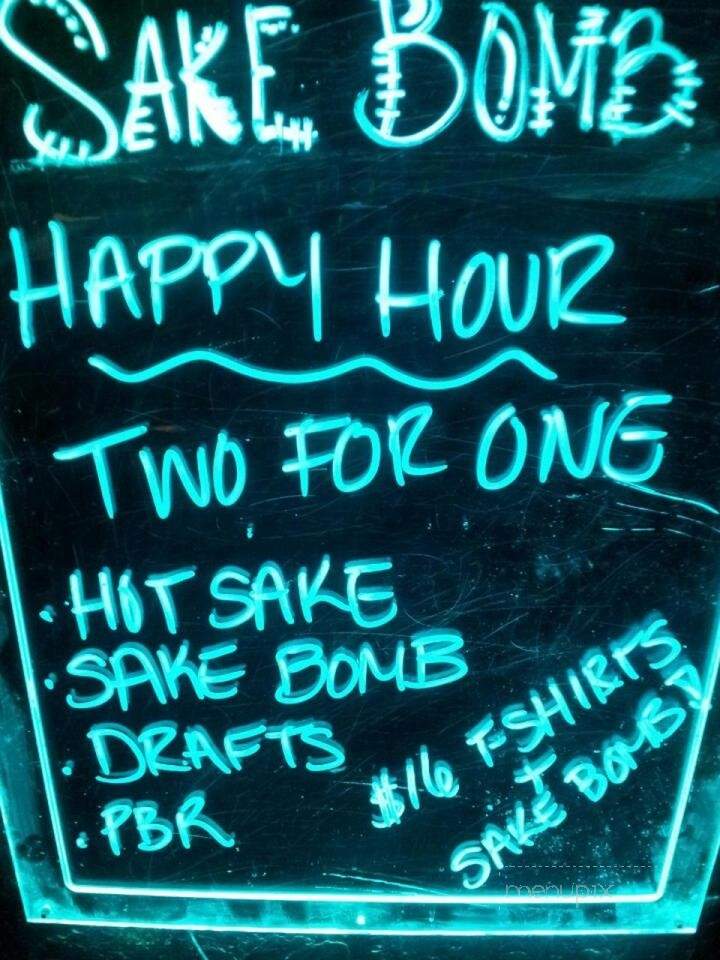 SAKE BOMB
HAPPY HOUR
TWO FOR ONE
• HOT SAKE
• SAKE BOMB
• DRAFTS
• PBR
$16 T-SHIRTS
+
SAKE BOMB!
menupix